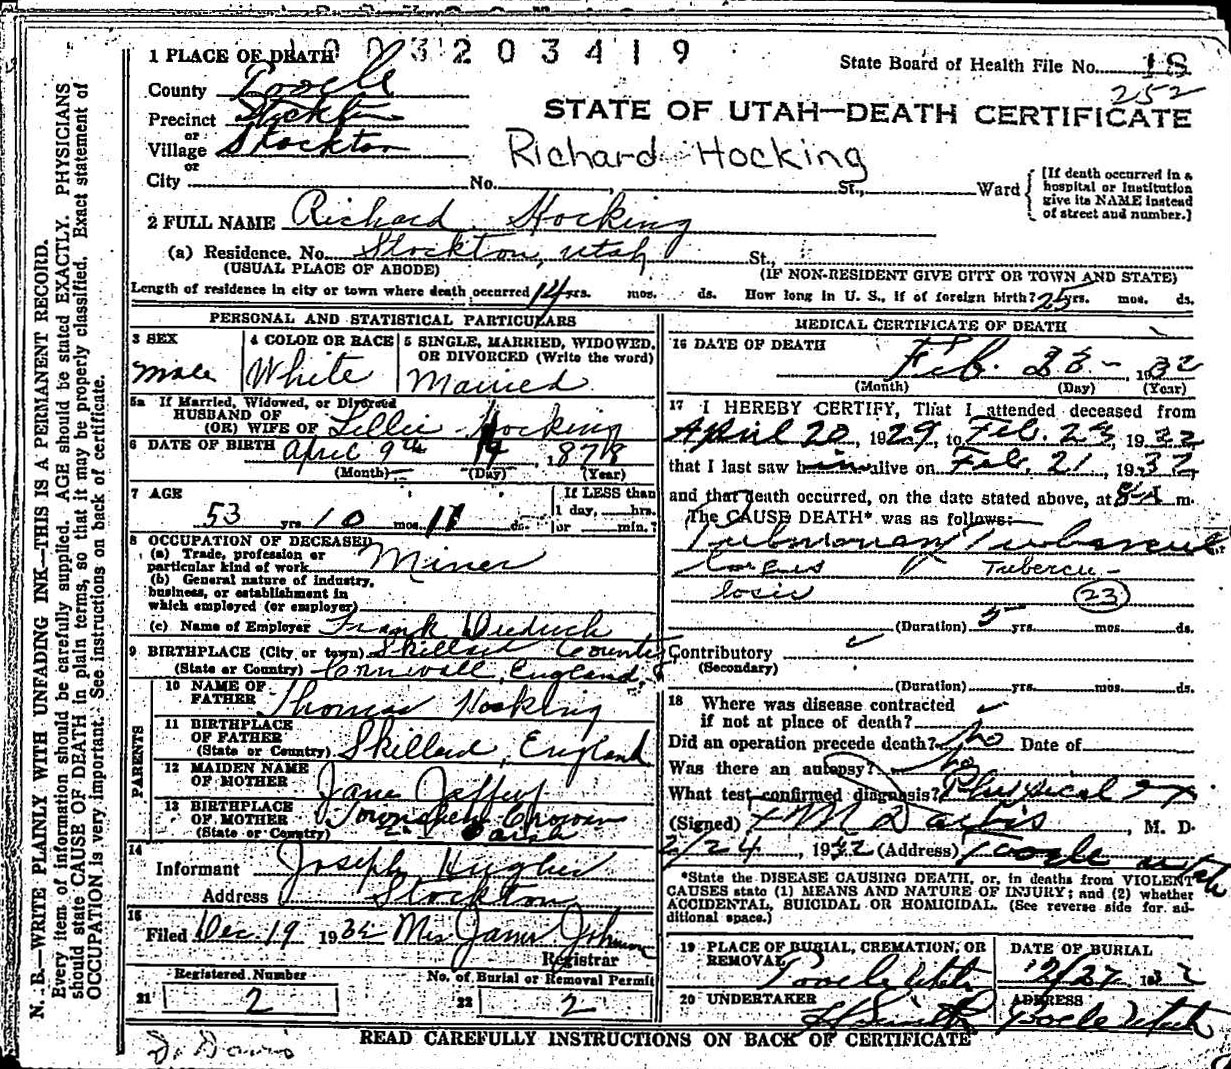 1 PLACE OF DEATH
1003203419
State Board of Health File No. 18
252
County Tooele
STATE OF UTAH—DEATH CERTIFICATE
Precinct Stockton
or
Village Stockton
Richard Hocking
or
City No. St., Ward
[If death occurred in a hospital or institution give its NAME instead of street and number.]
2 FULL NAME Richard Hocking
(a) Residence. No. Stockton, Utah St.,
(USUAL PLACE OF ABODE) (IF NON-RESIDENT GIVE CITY OR TOWN AND STATE)
Length of residence in city or town where death occurred 14 yrs. mos. ds. How long in U. S., if of foreign birth? 25 yrs. mos. ds.
PERSONAL AND STATISTICAL PARTICULARS
3 SEX
Male
4 COLOR OR RACE
White
5 SINGLE, MARRIED, WIDOWED, OR DIVORCED (Write the word)
Married
5a If Married, Widowed, or Divorced
HUSBAND OF
(OR) WIFE OF Lillie Hocking
6 DATE OF BIRTH April 9th 1878
(Month) (Day) (Year)
7 AGE
53 yrs. 10 mos. 11 ds.
If LESS than
1 day, hrs.
or min.?
8 OCCUPATION OF DECEASED
(a) Trade, profession or
particular kind of work Miner
(b) General nature of industry,
business, or establishment in
which employed (or employer)
(c) Name of Employer Frank
9 BIRTHPLACE (City or town) County
(State or Country) Cornwall, England
PARENTS
10 NAME OF
FATHER Thomas Hocking
11 BIRTHPLACE
OF FATHER
(State or Country) England
12 MAIDEN NAME
OF MOTHER Jane
13 BIRTHPLACE
OF MOTHER
(State or Country)
14
Informant Joseph Hughes
Address Stockton
15
Filed Dec. 19 1932 Mrs James Johnson
Registrar
Registered Number
21 2
No. of Burial or Removal Permit
22 2
MEDICAL CERTIFICATE OF DEATH
16 DATE OF DEATH
Feb. 23 - 1932
(Month) (Day) (Year)
17 I HEREBY CERTIFY, That I attended deceased from
April 20, 1929, to Feb. 23, 1932
that I last saw him alive on Feb. 21, 1932
and that death occurred, on the date stated above, at m.
The CAUSE DEATH* was as follows:
Pulmonary Tubercul
Tubercu-
losis 23
(Duration) 5 yrs. mos. ds.
Contributory
(Secondary)
(Duration) yrs. mos. ds.
18 Where was disease contracted
if not at place of death?
Did an operation precede death? No Date of
Was there an autopsy? No
What test confirmed diagnosis? Physical Ex
(Signed) J M Davis, M. D.
2/24, 1932 (Address) Tooele Utah
*State the DISEASE CAUSING DEATH, or, in deaths from VIOLENT
CAUSES state (1) MEANS AND NATURE OF INJURY; and (2) whether
ACCIDENTAL, SUICIDAL OR HOMICIDAL. (See reverse side for ad-
ditional space.)
19 PLACE OF BURIAL, CREMATION, OR
REMOVAL Tooele Utah
DATE OF BURIAL
2/27 1932
20 UNDERTAKER
ADDRESS
Tooele Utah
Dr Davis
READ CAREFULLY INSTRUCTIONS ON BACK OF CERTIFICATE
N. B.—WRITE PLAINLY WITH UNFADING INK—THIS IS A PERMANENT RECORD.
Every item of information should be carefully supplied. AGE should be stated EXACTLY. PHYSICIANS
should state CAUSE OF DEATH in plain terms, so that it may be properly classified. Exact statement of
OCCUPATION is very important. See instructions on back of certificate.